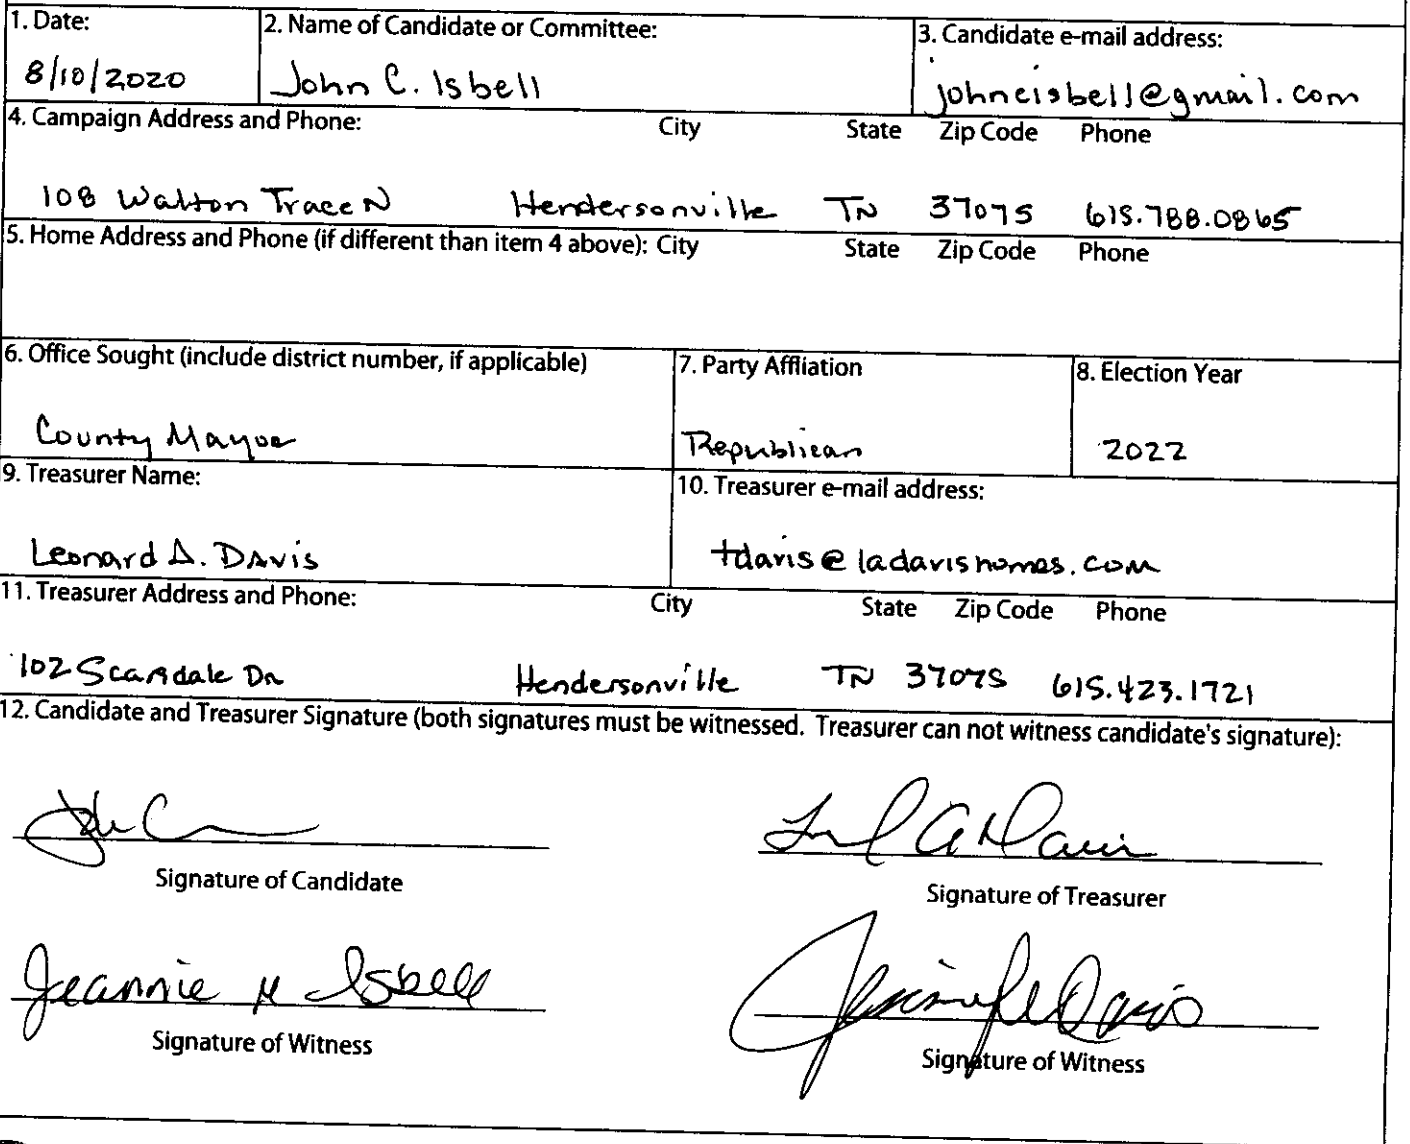 1. Date: 2. Name of Candidate or Committee: 3. Candidate e-mail address:
8/10/2020 John C. Isbell johncisbell@gmail.com
4. Campaign Address and Phone: City State Zip Code Phone
108 Walton Trace N Hendersonville TN 37075 615.788.0865
5. Home Address and Phone (if different than item 4 above): City State Zip Code Phone
6. Office Sought (include district number, if applicable) 7. Party Affliation 8. Election Year
County Mayor Republican 2022
9. Treasurer Name: 10. Treasurer e-mail address:
Leonard A. Davis tdavis@ladavishomes.com
11. Treasurer Address and Phone: City State Zip Code Phone
102 Scarsdale Dr Hendersonville TN 37075 615.423.1721
12. Candidate and Treasurer Signature (both signatures must be witnessed. Treasurer can not witness candidate's signature):
Signature of Candidate Signature of Treasurer
Jeannie M Isbell Davis
Signature of Witness Signature of Witness